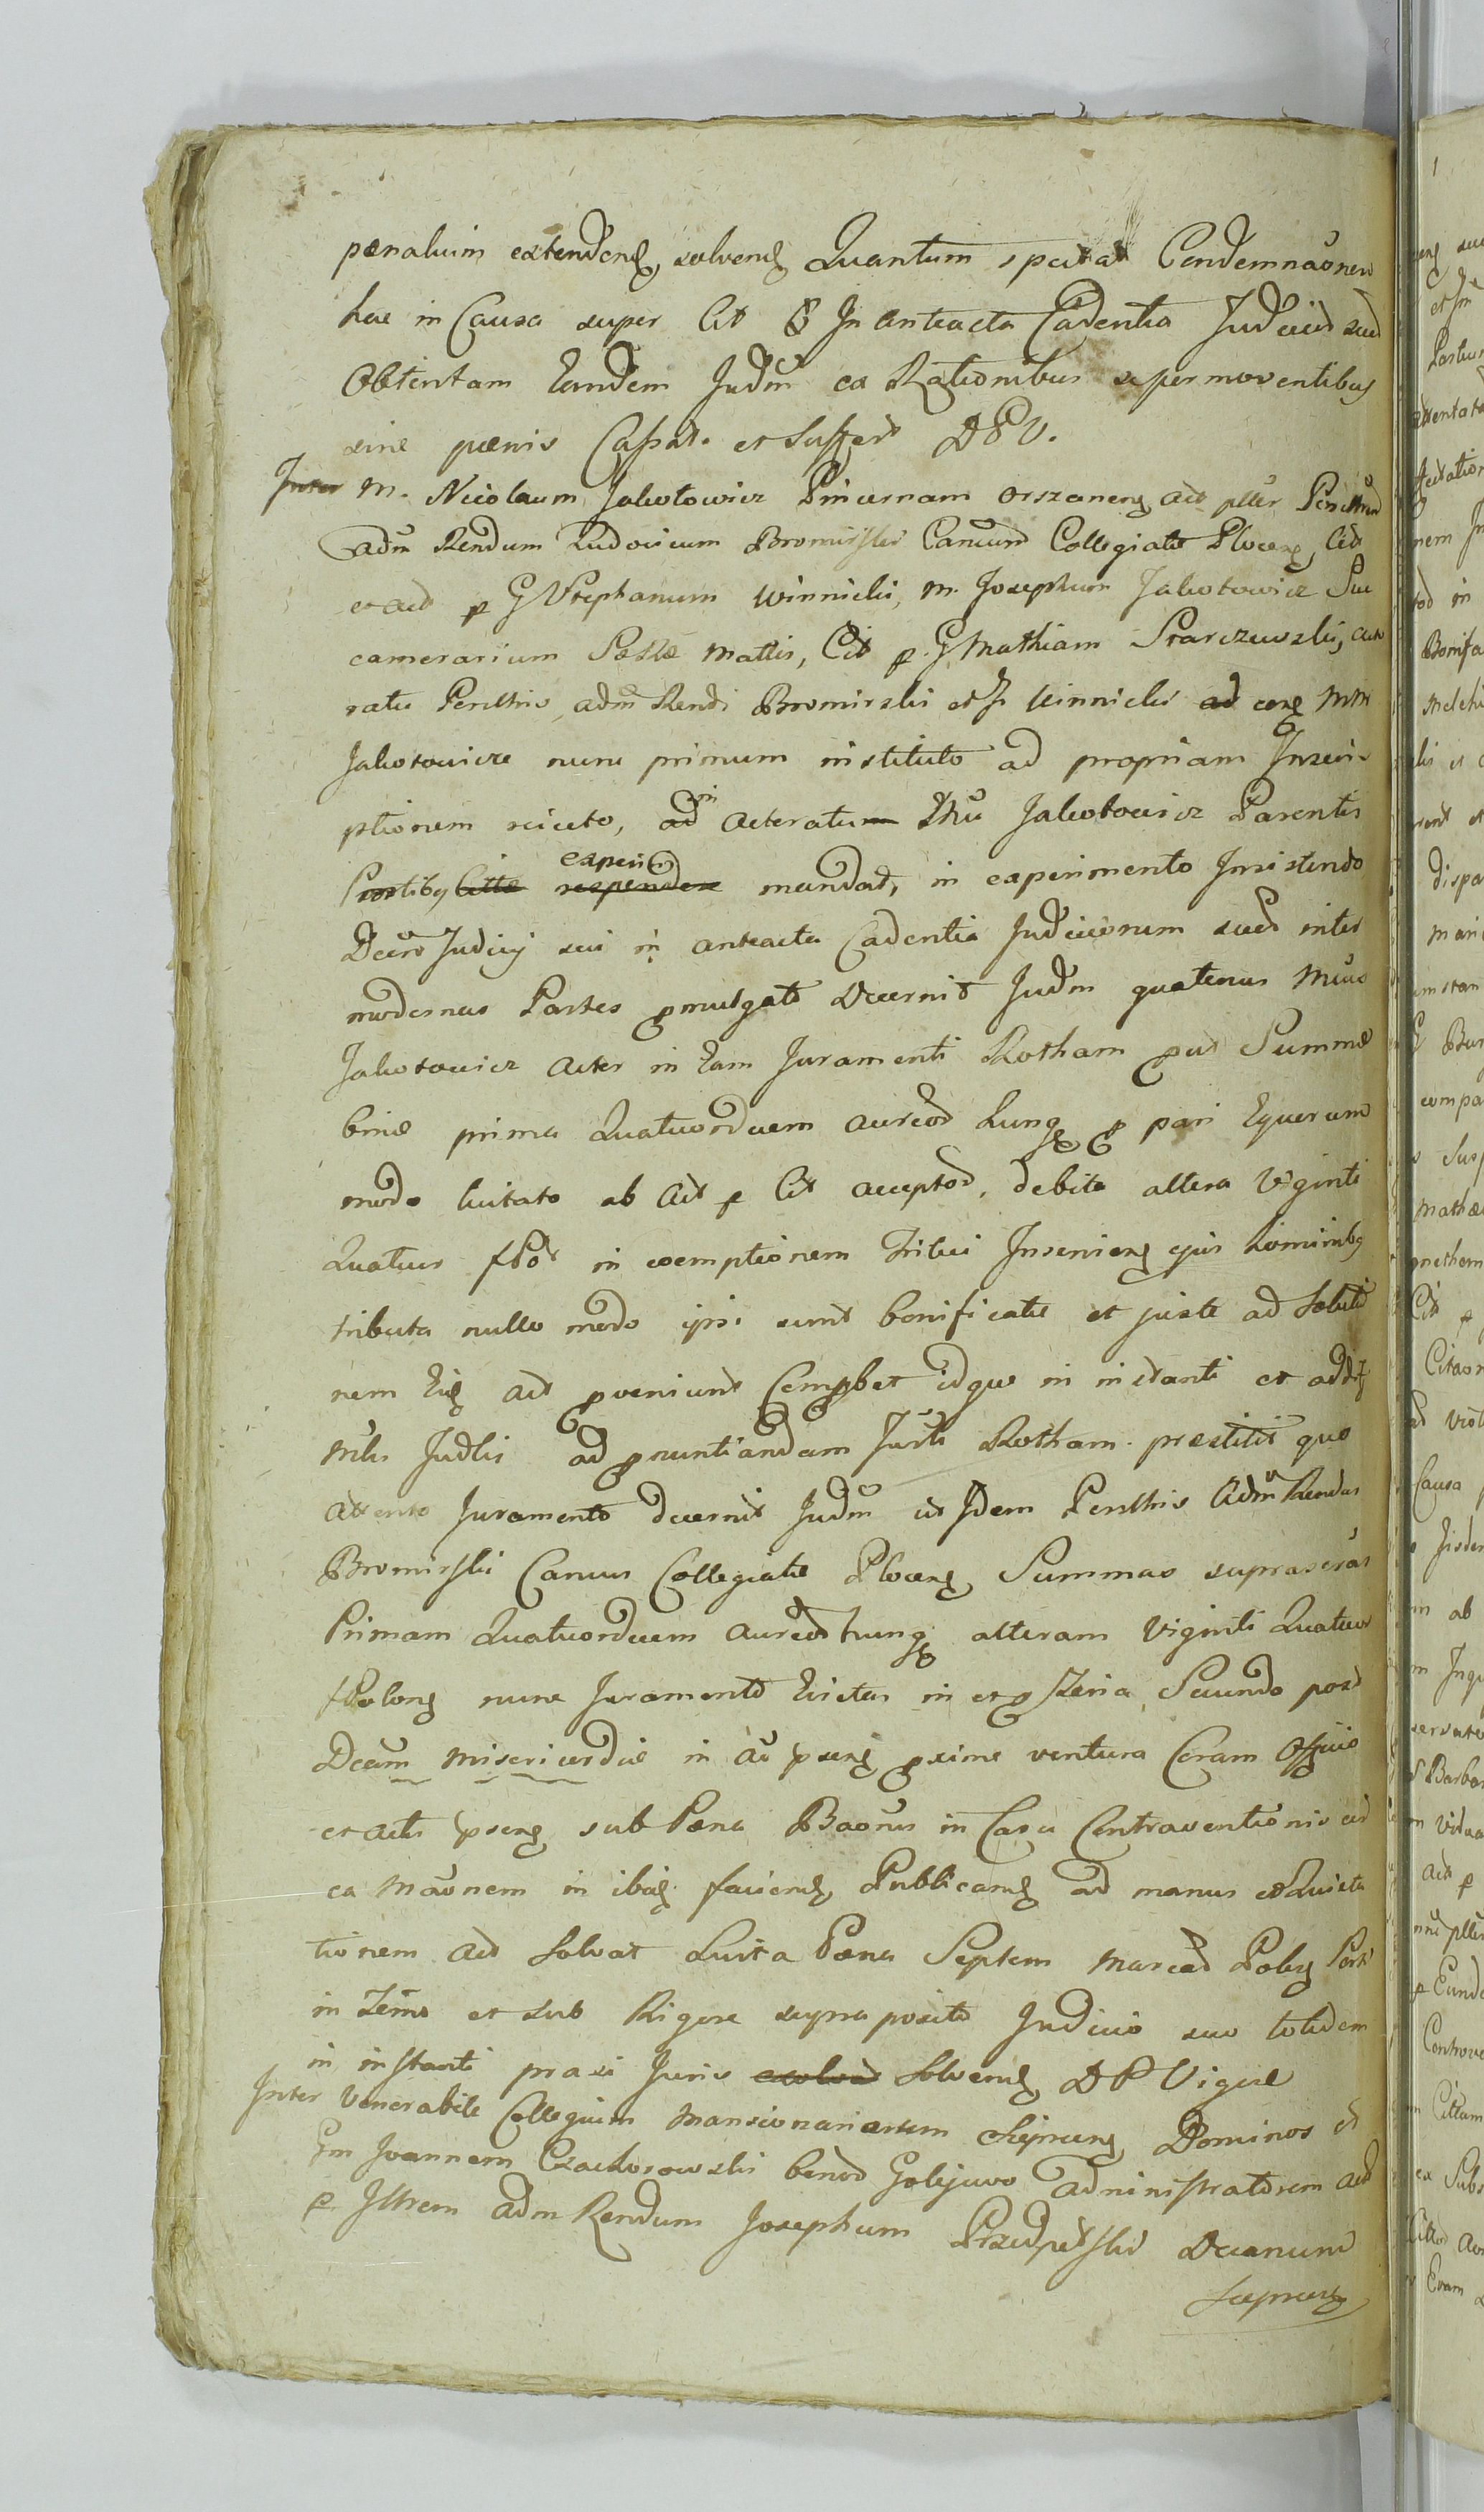 pænaluim extendeng, solveng Quantum spectat Condemnaõnem
hac in Causa super Cit & In anteacta Cadentia Judicior suor
Obtentam Eandem Judm ex Rationibus se permoventibus
sine pænis Cassat et Suffert DPV.
Inter M. Nicolaum Jakotowicz Pincernam Orszaneng act pller Penttum
adm Rendum Ludovicum Bromirski Cancum Collegiatæ Ploceng Cit
et act p G Stephanum Winnicki, M. Josephum Jakotowicz Suc
camerarium Mattis, Cit p. G Mathiam Starczewski, acto
ratu Penttis adm Rendi Bromirski et G Winnicki ad eeng MM
Jakotowicze nunc primum instituto ad propriam Inscri
ptionem reiecto, ad in actoratu Jakotowicz Parentis
Partibg experiri mandat, in experimento Insistendo
Decreto Judicij sui in anteacta Cadentia Judiciorum suor inter
modernas Partes pmulgato Decernit Judm quatenus Mcus
Jakotowicz Actor in Eam Juramenti Rotham put Summæ
binæ prima Quatuordecem aureor hung p pari Equorum
modo licitato ab Act p Cit acceptor, debita altera Viginti
Quatuor fPol in coemptionem tritici Inserving ejus hominibg
tributa nullo modo ipsi sunt bonificatæ et juste ad Soluti
nem Eig act pveniunt Comprobet idque in instanti et addit
Mtri Judlis ad pnuntiandam Jurti Rotham præstitit quo
attento Juramento decernit Judm ut Idem Penttis Adm Rendus
Bromirski Cancus Collegiatæ Ploceng Summas suprascrãs
Primam Quatuordecem aureor hung alteram Viginti Quatuor
fPolong nunc Juramento Evictas in et p Feria Secunda post
Dcam Misericordiæ in ãõ pseng pxime ventura Coram Officio
et actis pseng sub Pæna Baõnis in Casu Contraventionis ad
ea Mãõnem in ibig facieng Publicang ad manus et Quieta
tionem Act Solvat Luita Pæna Septem marcar Polog Parti
in Termo et sub Rigore supraposito Judicio suo totidem
in instanti praxi Juris Solveng DP Vigore
Inter Venerabile Collegium Mansionariorum Lipneng Dominos et
Gm Joannem Czachorowski bonor Golejewo administratorem act
p. Illtrem adm Rendum Josephum Przedpelski Decanum
Lipneng